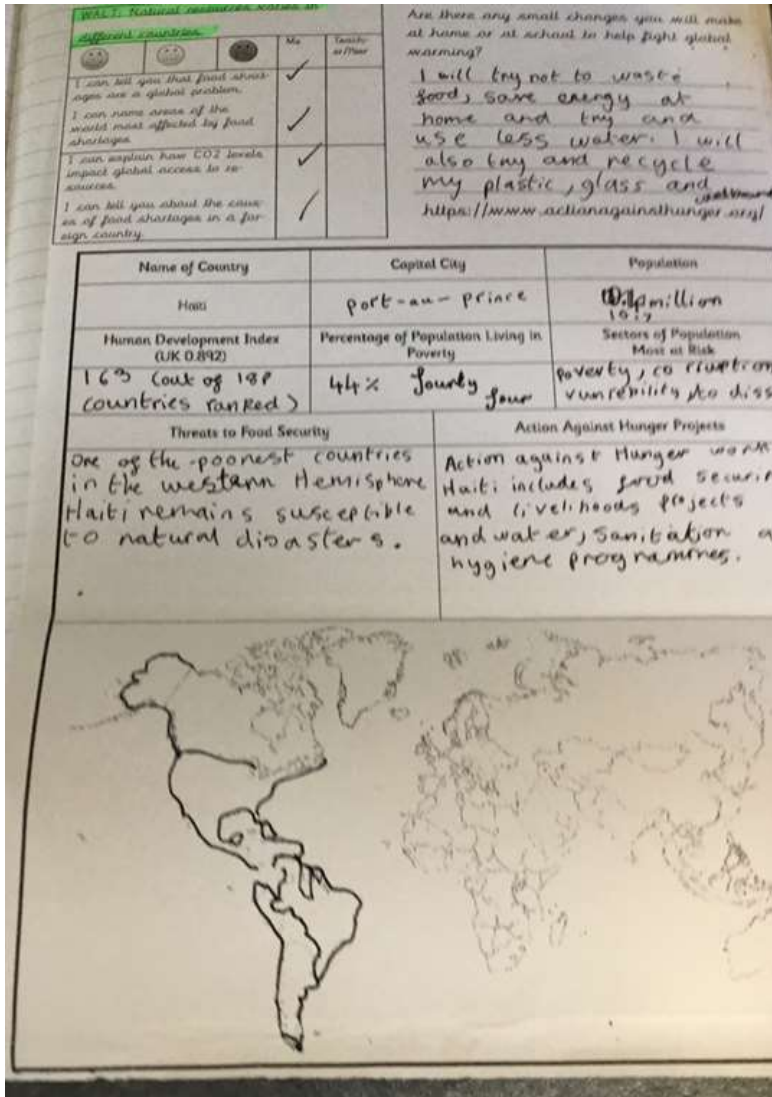 WALT: Natural resources varies in
different countries.
Me
Teach-
er/Peer
I can tell you that food short-
ages are a global problem.
I can name areas of the
world most affected by food
shortages
I can explain how CO2 levels
impact global access to re-
sources.
I can tell you about the caus-
es of food shortages in a for-
eign country.
Are there any small changes you will make
at home or at school to help fight global
warming?
I will try not to waste
food, save energy at
home and try and
use less water. I will
also try and recycle
my plastic, glass and
https://www.actionagainsthunger.org/
Name of Country
Capital City
Population
Haiti
port-au-prince
million
10.7
Human Development Index
(UK 0.892)
Percentage of Population Living in
Poverty
Sectors of Population
Most at Risk
163 (out of 188
countries ranked)
44% fourty
four
poverty, corruption
vunrebility to diss
Threats to Food Security
Action Against Hunger Projects
One of the poorest countries
in the western Hemisphere
Haiti remains susceptible
to natural disasters.
Action against Hunger work
Haiti includes food securit
and livelihoods projects
and water, sanitation a
hygiene programmes.